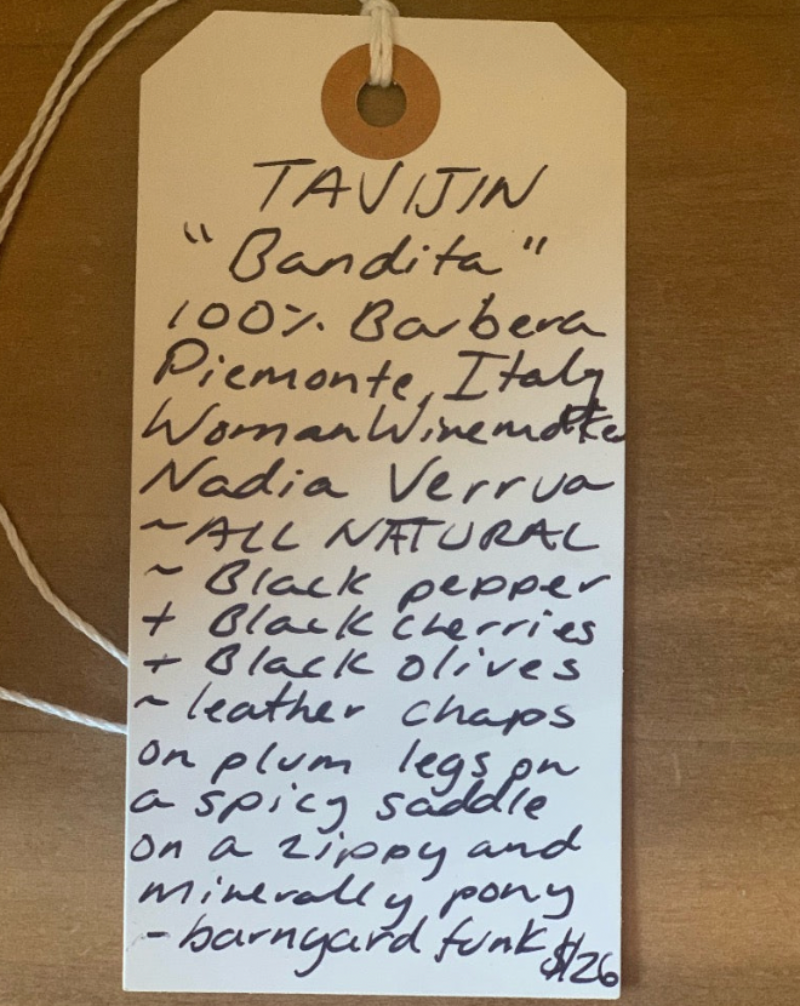 TAVIJIN
"Bandita"
100% Barbera
Piemonte, Italy
Woman Winemaker
Nadia Verrua
~ALL NATURAL
~ Black pepper
+ Black cherries
+ Black olives
~leather chaps
on plum legs on
a spicy saddle
on a zippy and
minerally pony
-barnyard funk $126